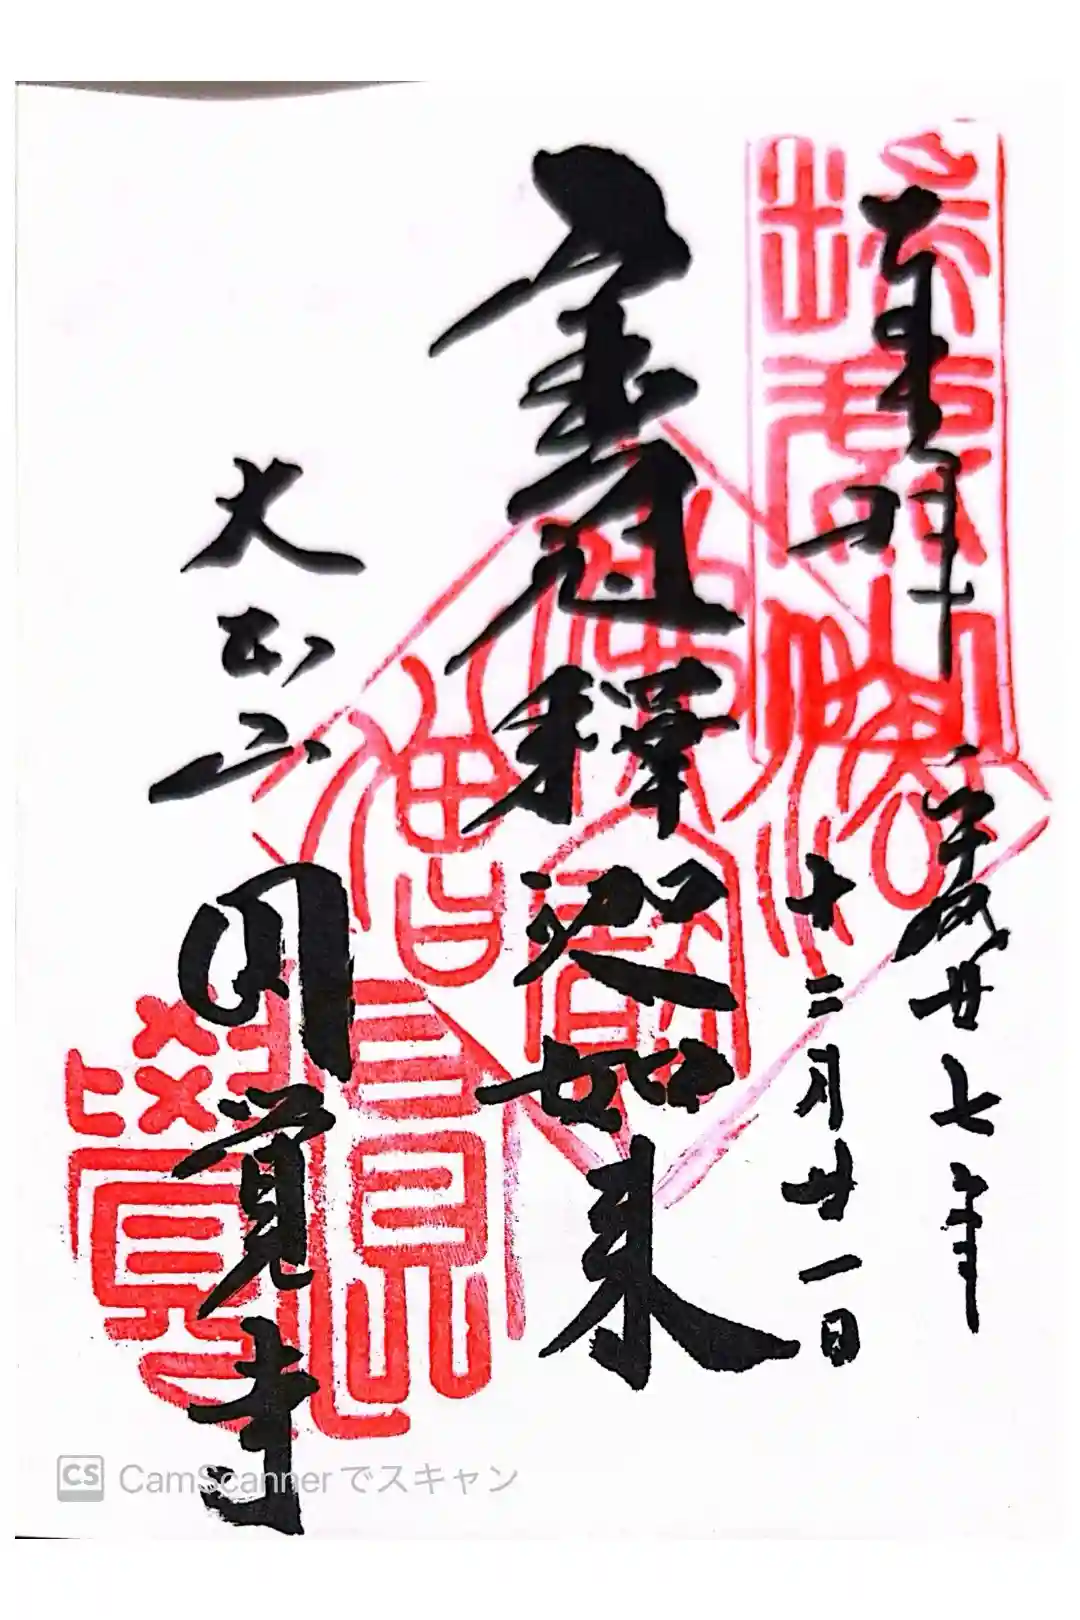 奉拝
平成廿七年
十二月廿一日
宝冠釋迦如来
大本山
円覚寺
佛法僧寳
CS CamScannerでスキャン